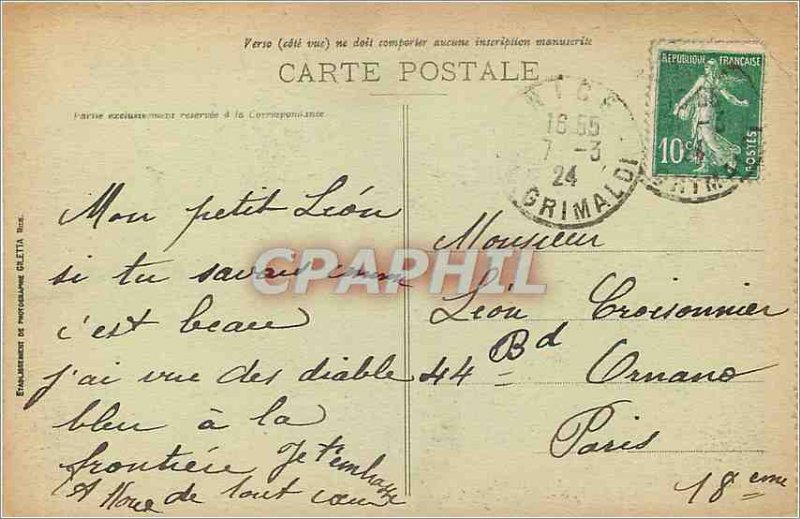 Verso (côté vue) ne doit comporter aucune inscription manuscrite
CARTE POSTALE
Partie exclusivement reservée à la Correspondance
RÉPUBLIQUE FRANÇAISE
10c
POSTES
NICE
16 55
7 - 3
24
GRIMALDI
Mon petit Léon
si tu savais comme
c'est beau
j'ai vue des diable
bleu à la
frontiére Je t'embrasse
de tout coeur
Monsieur
Léon Croisonnier
44 Bd Ornano
Paris
18eme
ETABLISSEMENT DE PHOTOGRAPHIE GILETTA NICE.
CPAPHIL